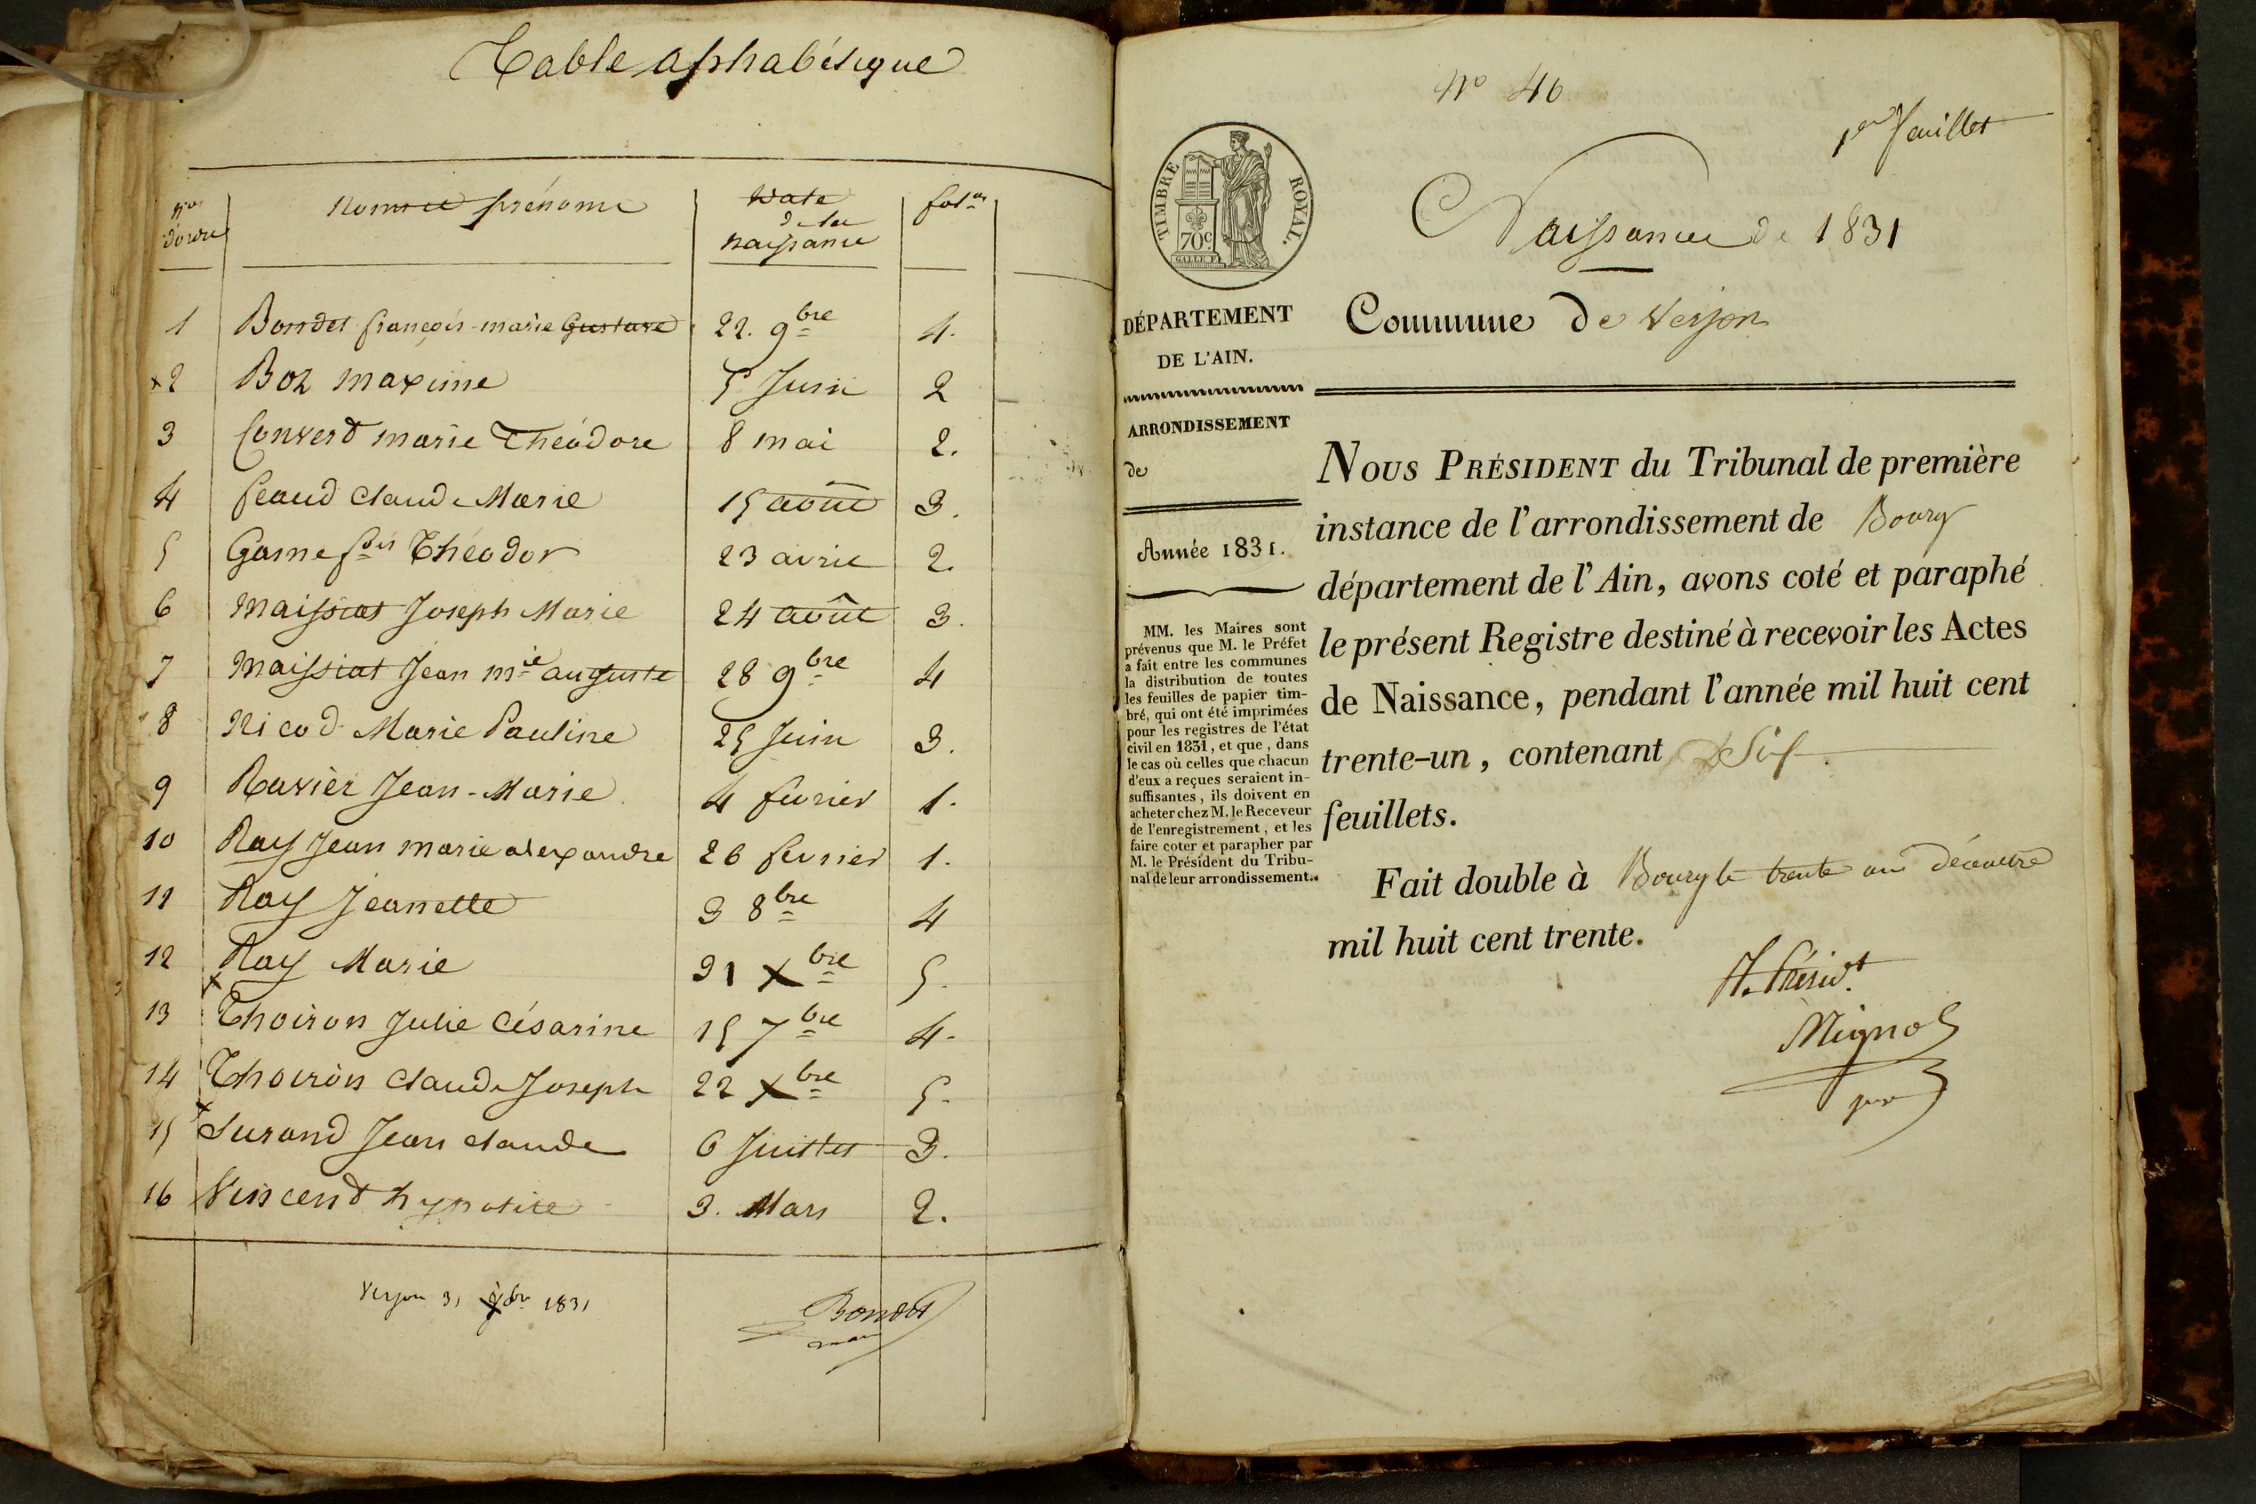 Table alphabétique
Nos d'ordre | Noms et prénoms | Date de la naissance | folos
1 Bondet françois-marie Gustave 22. 9bre 4.
2 Boz maxime 5 Juin 2
3 Convert marie Théodore 8 mai 2.
4 feaud Claude Marie 15 août 3.
5 Game fois Théodor 23 avril 2.
6 Maissiat Joseph Marie 24 août 3.
7 Maissiat Jean Mie auguste 28 9bre 4
8 Nicod Marie Pauline 25 Juin 3.
9 Ravier Jean-Marie 4 fevrier 1.
10 Ray Jean marie alexandre 26 fevrier 1.
11 Ray Jeanette 3 8bre 4
12 Ray Marie 31 Xbre 5.
13 Thoiron Julie Césarine 15 7bre 4.
14 Thoiron Claude Joseph 22 Xbre 5.
15 Surand Jean Claude 6 Juillet 3.
16 Vincent hypolite 3. Mars 2.
Verjon 31 Xbre 1831
Bondet
No 46
1er feuillet
TIMBRE ROYAL.
70c.
Naissances de 1831
Commune de Verjon
DÉPARTEMENT
DE L'AIN.
ARRONDISSEMENT
de
Année 1831.
MM. les Maires sont
prévenus que M. le Préfet
a fait entre les communes
la distribution de toutes
les feuilles de papier tim-
bré, qui ont été imprimées
pour les registres de l'état
civil en 1831, et que, dans
le cas où celles que chacun
d'eux a reçues seraient in-
suffisantes, ils doivent en
acheter chez M. le Receveur
de l'enregistrement, et les
faire coter et parapher par
M. le Président du Tribu-
nal de leur arrondissement.
NOUS PRÉSIDENT du Tribunal de première
instance de l'arrondissement de Bourg
département de l'Ain, avons coté et paraphé
le présent Registre destiné à recevoir les Actes
de Naissance, pendant l'année mil huit cent
trente-un, contenant Six
feuillets.
Fait double à Bourg le trente un décembre
mil huit cent trente.